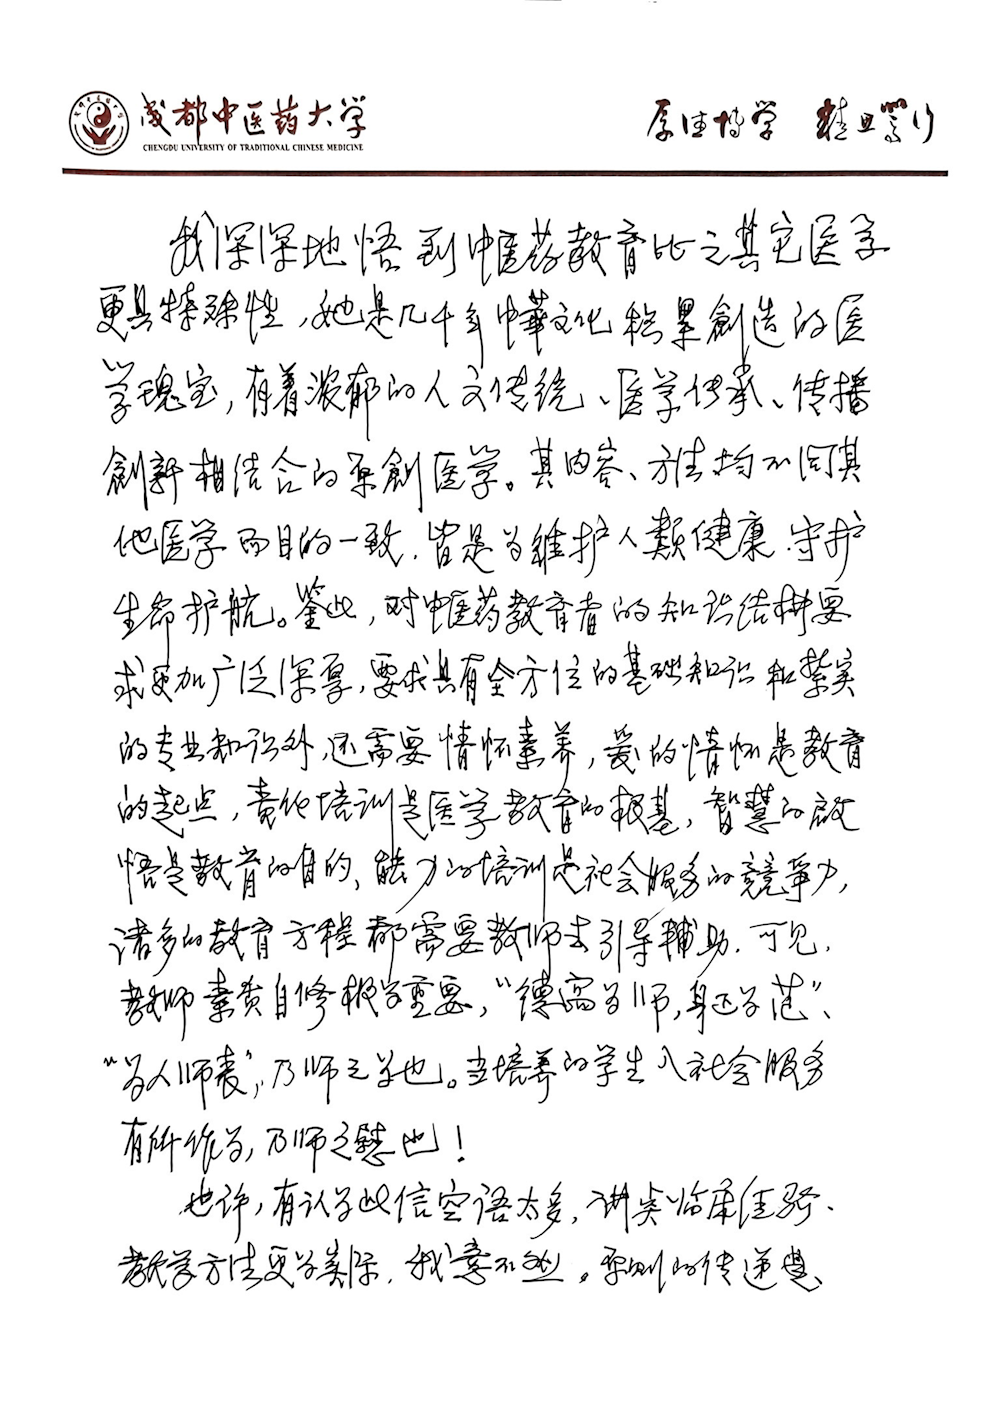 成都中医药大学
CHENGDU UNIVERSITY OF TRADITIONAL CHINESE MEDICINE
厚德博学 精思笃行
我深深地悟到中医药教育比之其它医学
更具特殊性，她是几千年中華文化积累創造的医
学瑰宝，有着浓郁的人文传统、医学传承、传播
創新相结合的原創医学。其内容、方法均不同其
他医学而目的一致，皆是为維护人類健康、守护
生命护航。鉴此，对中医药教育者的知识结构要
求更加广泛深厚，要求具有全方位的基础知识和紮实
的专业知识外，还需要情怀素养，爱的情怀是教育
的起点，责任培训是医学教育的根基，智慧的啟
悟是教育的目的，能力的培训是社会服务的競爭力，
诸多的教育方程都需要教师去引导輔助。可见，
教师素质自修极为重要，“德高为师，身正为范”、
“为人师表”，乃师之为也。当培养的学生入社会服务
有所作为，乃师之慰也！
也许，有认为此信空语太多，讲类临床经验、
教学方法更为实际，我意不然。原则的传递是、